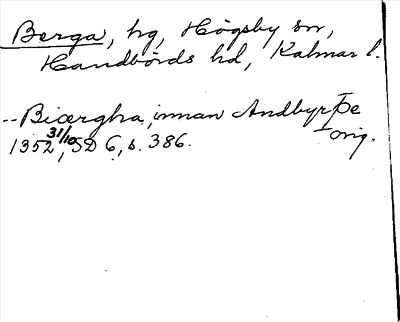 Berga, hg, Högsby sn,
Handbörds hd, Kalmar l.
-- Biærgha, innan Andbyrþe
1352 31/10, SD 6, s. 386. orig.